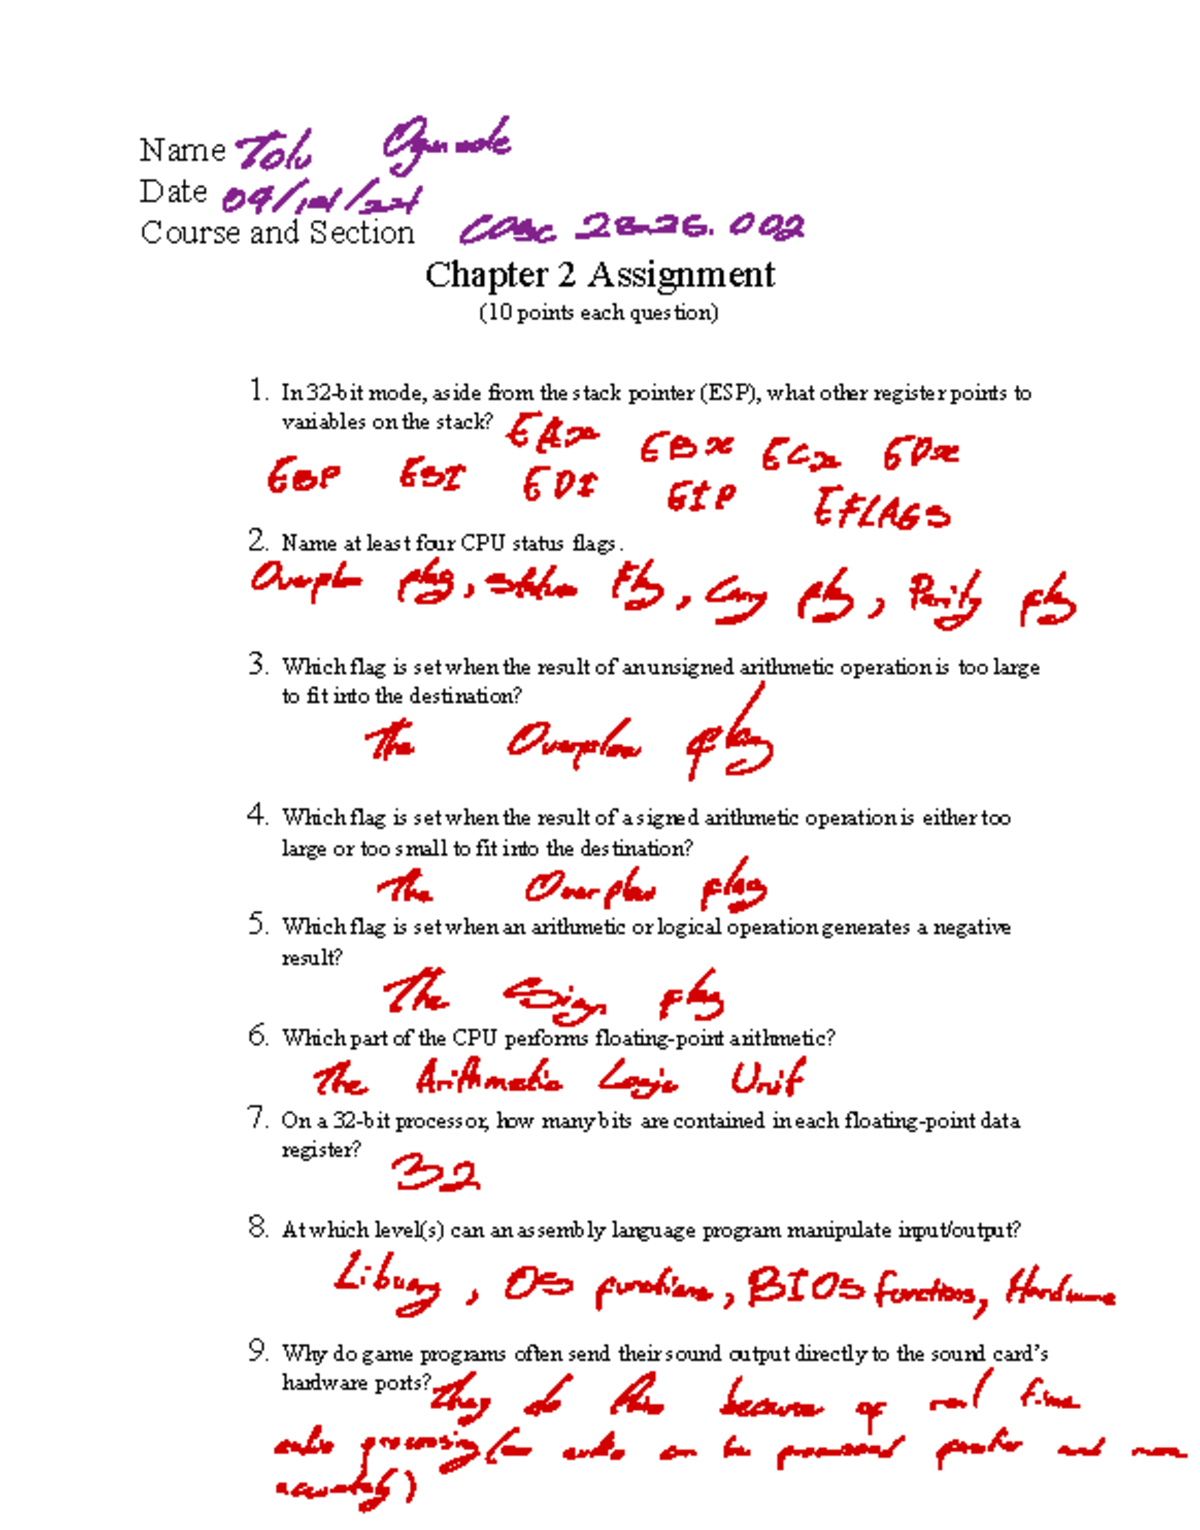 Name Tolu Ogunmole
Date 09/14/24
Course and Section COSC 2825.002
Chapter 2 Assignment
(10 points each question)
1. In 32-bit mode, aside from the stack pointer (ESP), what other register points to
variables on the stack? EAx EBx ECx EDx
EBP ESI EDI EIP EFLAGS
2. Name at least four CPU status flags.
Overflow flag, flag, Carry flag, Parity flag
3. Which flag is set when the result of an unsigned arithmetic operation is too large
to fit into the destination?
The Overflow flag
4. Which flag is set when the result of a signed arithmetic operation is either too
large or too small to fit into the destination?
The Overflow flag
5. Which flag is set when an arithmetic or logical operation generates a negative
result?
The Sign flag
6. Which part of the CPU performs floating-point arithmetic?
The Arithmetic Logic Unit
7. On a 32-bit processor, how many bits are contained in each floating-point data
register?
32
8. At which level(s) can an assembly language program manipulate input/output?
Library, OS functions, BIOS functions, Hardware
9. Why do game programs often send their sound output directly to the sound card’s
hardware ports? They do this because of real time
audio processing (so audio can be processed and more
accurately)